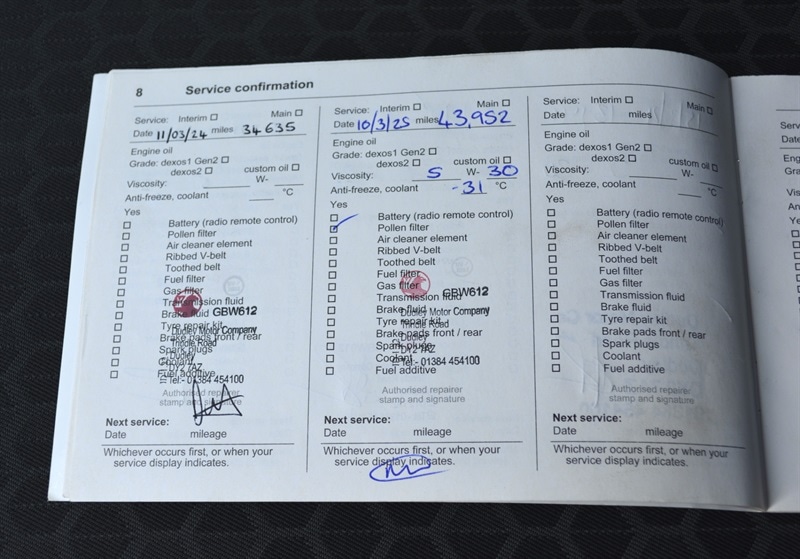 8 Service confirmation
Service: Interim Main
Date 11/03/24 miles 34635
Engine oil
Grade: dexos1 Gen2
dexos2 custom oil
Viscosity: W-
Anti-freeze, coolant °C
Yes
Battery (radio remote control)
Pollen filter
Air cleaner element
Ribbed V-belt
Toothed belt
Fuel filter
Gas filter
Transmission fluid
Brake fluid GBW612
Tyre repair kit
Dudley Motor Company
Brake pads front / rear
Trindle Road
Spark plugs
Dudley
Coolant
DY2 7AZ
Fuel additive
Tel:- 01384 454100
Authorised repairer
stamp and signature
Next service:
Date mileage
Whichever occurs first, or when your
service display indicates.
Service: Interim Main
Date 10/3/25 miles 43,952
Engine oil
Grade: dexos1 Gen2
dexos2 custom oil
Viscosity: 5 W- 30
Anti-freeze, coolant -31 °C
Yes
Battery (radio remote control)
Pollen filter
Air cleaner element
Ribbed V-belt
Toothed belt
Fuel filter
Gas filter
GBW612
Transmission fluid
Brake fluid
Dudley Motor Company
Tyre repair kit
Trindle Road
Brake pads front / rear
Dudley
Spark plugs
DY2 7AZ
Coolant
Tel:- 01384 454100
Fuel additive
Authorised repairer
stamp and signature
Next service:
Date mileage
Whichever occurs first, or when your
service display indicates.
Service: Interim Main
Date miles
Engine oil
Grade: dexos1 Gen2
dexos2 custom oil
Viscosity: W-
Anti-freeze, coolant °C
Yes
Battery (radio remote control)
Pollen filter
Air cleaner element
Ribbed V-belt
Toothed belt
Fuel filter
Gas filter
Transmission fluid
Brake fluid
Tyre repair kit
Brake pads front / rear
Spark plugs
Coolant
Fuel additive
Authorised repairer
stamp and signature
Next service:
Date mileage
Whichever occurs first, or when your
service display indicates.